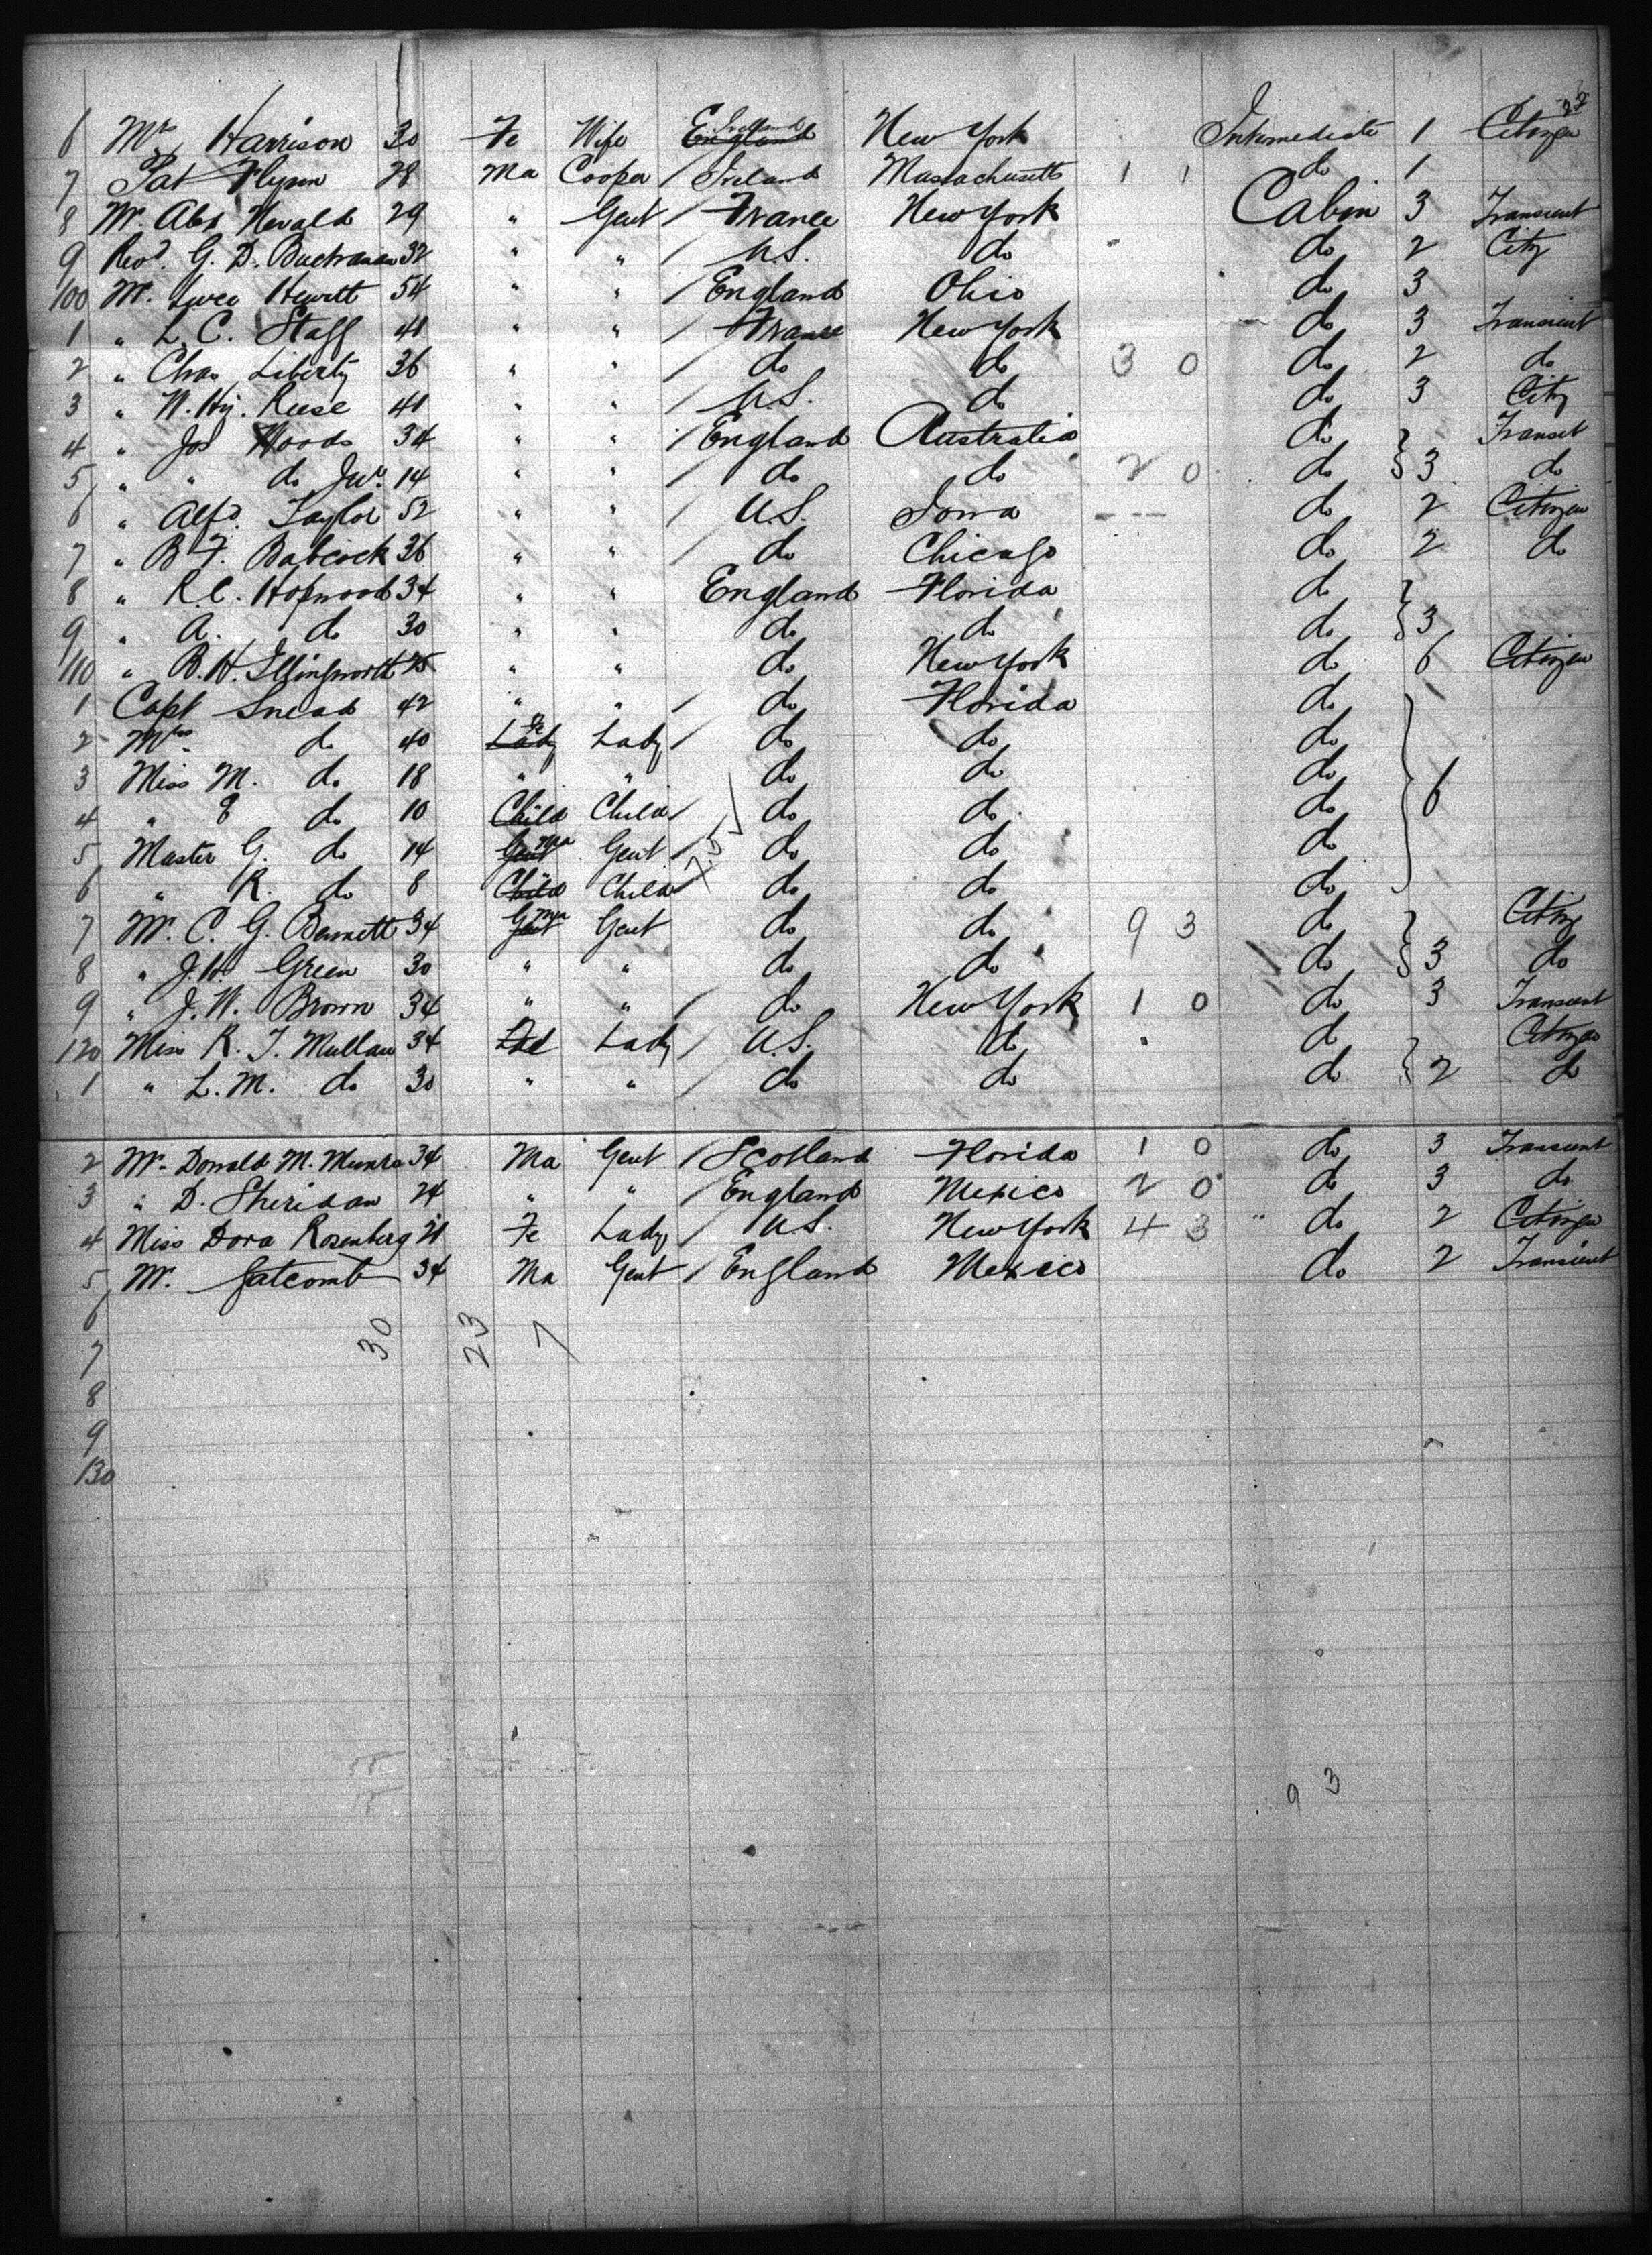 22
6 Mrs Harrison 30 Fe Wife England Ireland New York Intermediate 1 Citizen
7 Pat Flynn 28 Ma Cooper / Ireland Massachusetts 1 1 do 1
8 Mr. Alex 29 " Gent / France New York Cabin 3 Transient
9 Revd. G. D. Buchanan 32 " " / U.S. do do 2 City
100 Mr. Hewitt 54 " " / England Ohio do 3
1 " L. C. Stagg 41 " " / France New York do 3 Transient
2 " Chas Liberty 36 " " / do do 3 0 do 2 do
3 " W. Hy. Reese 41 " " / U.S. do do 3 City
4 " Jos Woods 34 " " / England Australia do } Transit
5 " " do Junr. 14 " " / do do 2 0 do } 3 do
6 " Alfd. Taylor 52 " " / U.S. Iowa --- do 2 Citizen
7 " B. F. Babcock 36 " " / do Chicago do 2 do
8 " R. C. Hopwood 34 " " England Florida do }
9 " A. do 30 " " do do do } 3
110 " B. H. Illingworth 25 " " do New York do 6 Citizen
1 Capt Snead 42 " " / do Florida do }
2 Mrs. do 40 Lady Fe Lady / do do do
3 Miss M. do 18 " " do do do } 6
4 " E do 10 Child Child / do do do
5 Master G. do 14 Gent Ma Gent / do do do
6 " R. do 8 Child Child / do do do
7 Mr. C. G. Bennett 34 Gent Ma Gent do do 9 3 do } Citizen
8 " J. H. Green 30 " " do do do } 3 do
9 " J. W. Brown 34 " " / do New York 1 0 do 3 Transient
120 Miss R. J. Mullan 34 Lady / U.S. do do } Citizen
1 " L. M. do 30 " " / do do do } 2 do
2 Mr. Donald M. Munro 34 Ma Gent / Scotland Florida 1 0 do 3 Transient
3 " D. Sheridan 24 " " / England Mexico 2 0 do 3 do
4 Miss Dora Rosenberg 21 Fe Lady / U.S. New York 4 3 " do 2 Citizen
5 Mr. Gatcomb 34 Ma Gent / England Mexico do 2 Transient
6
7 30 23 7
8
9
130
9 3